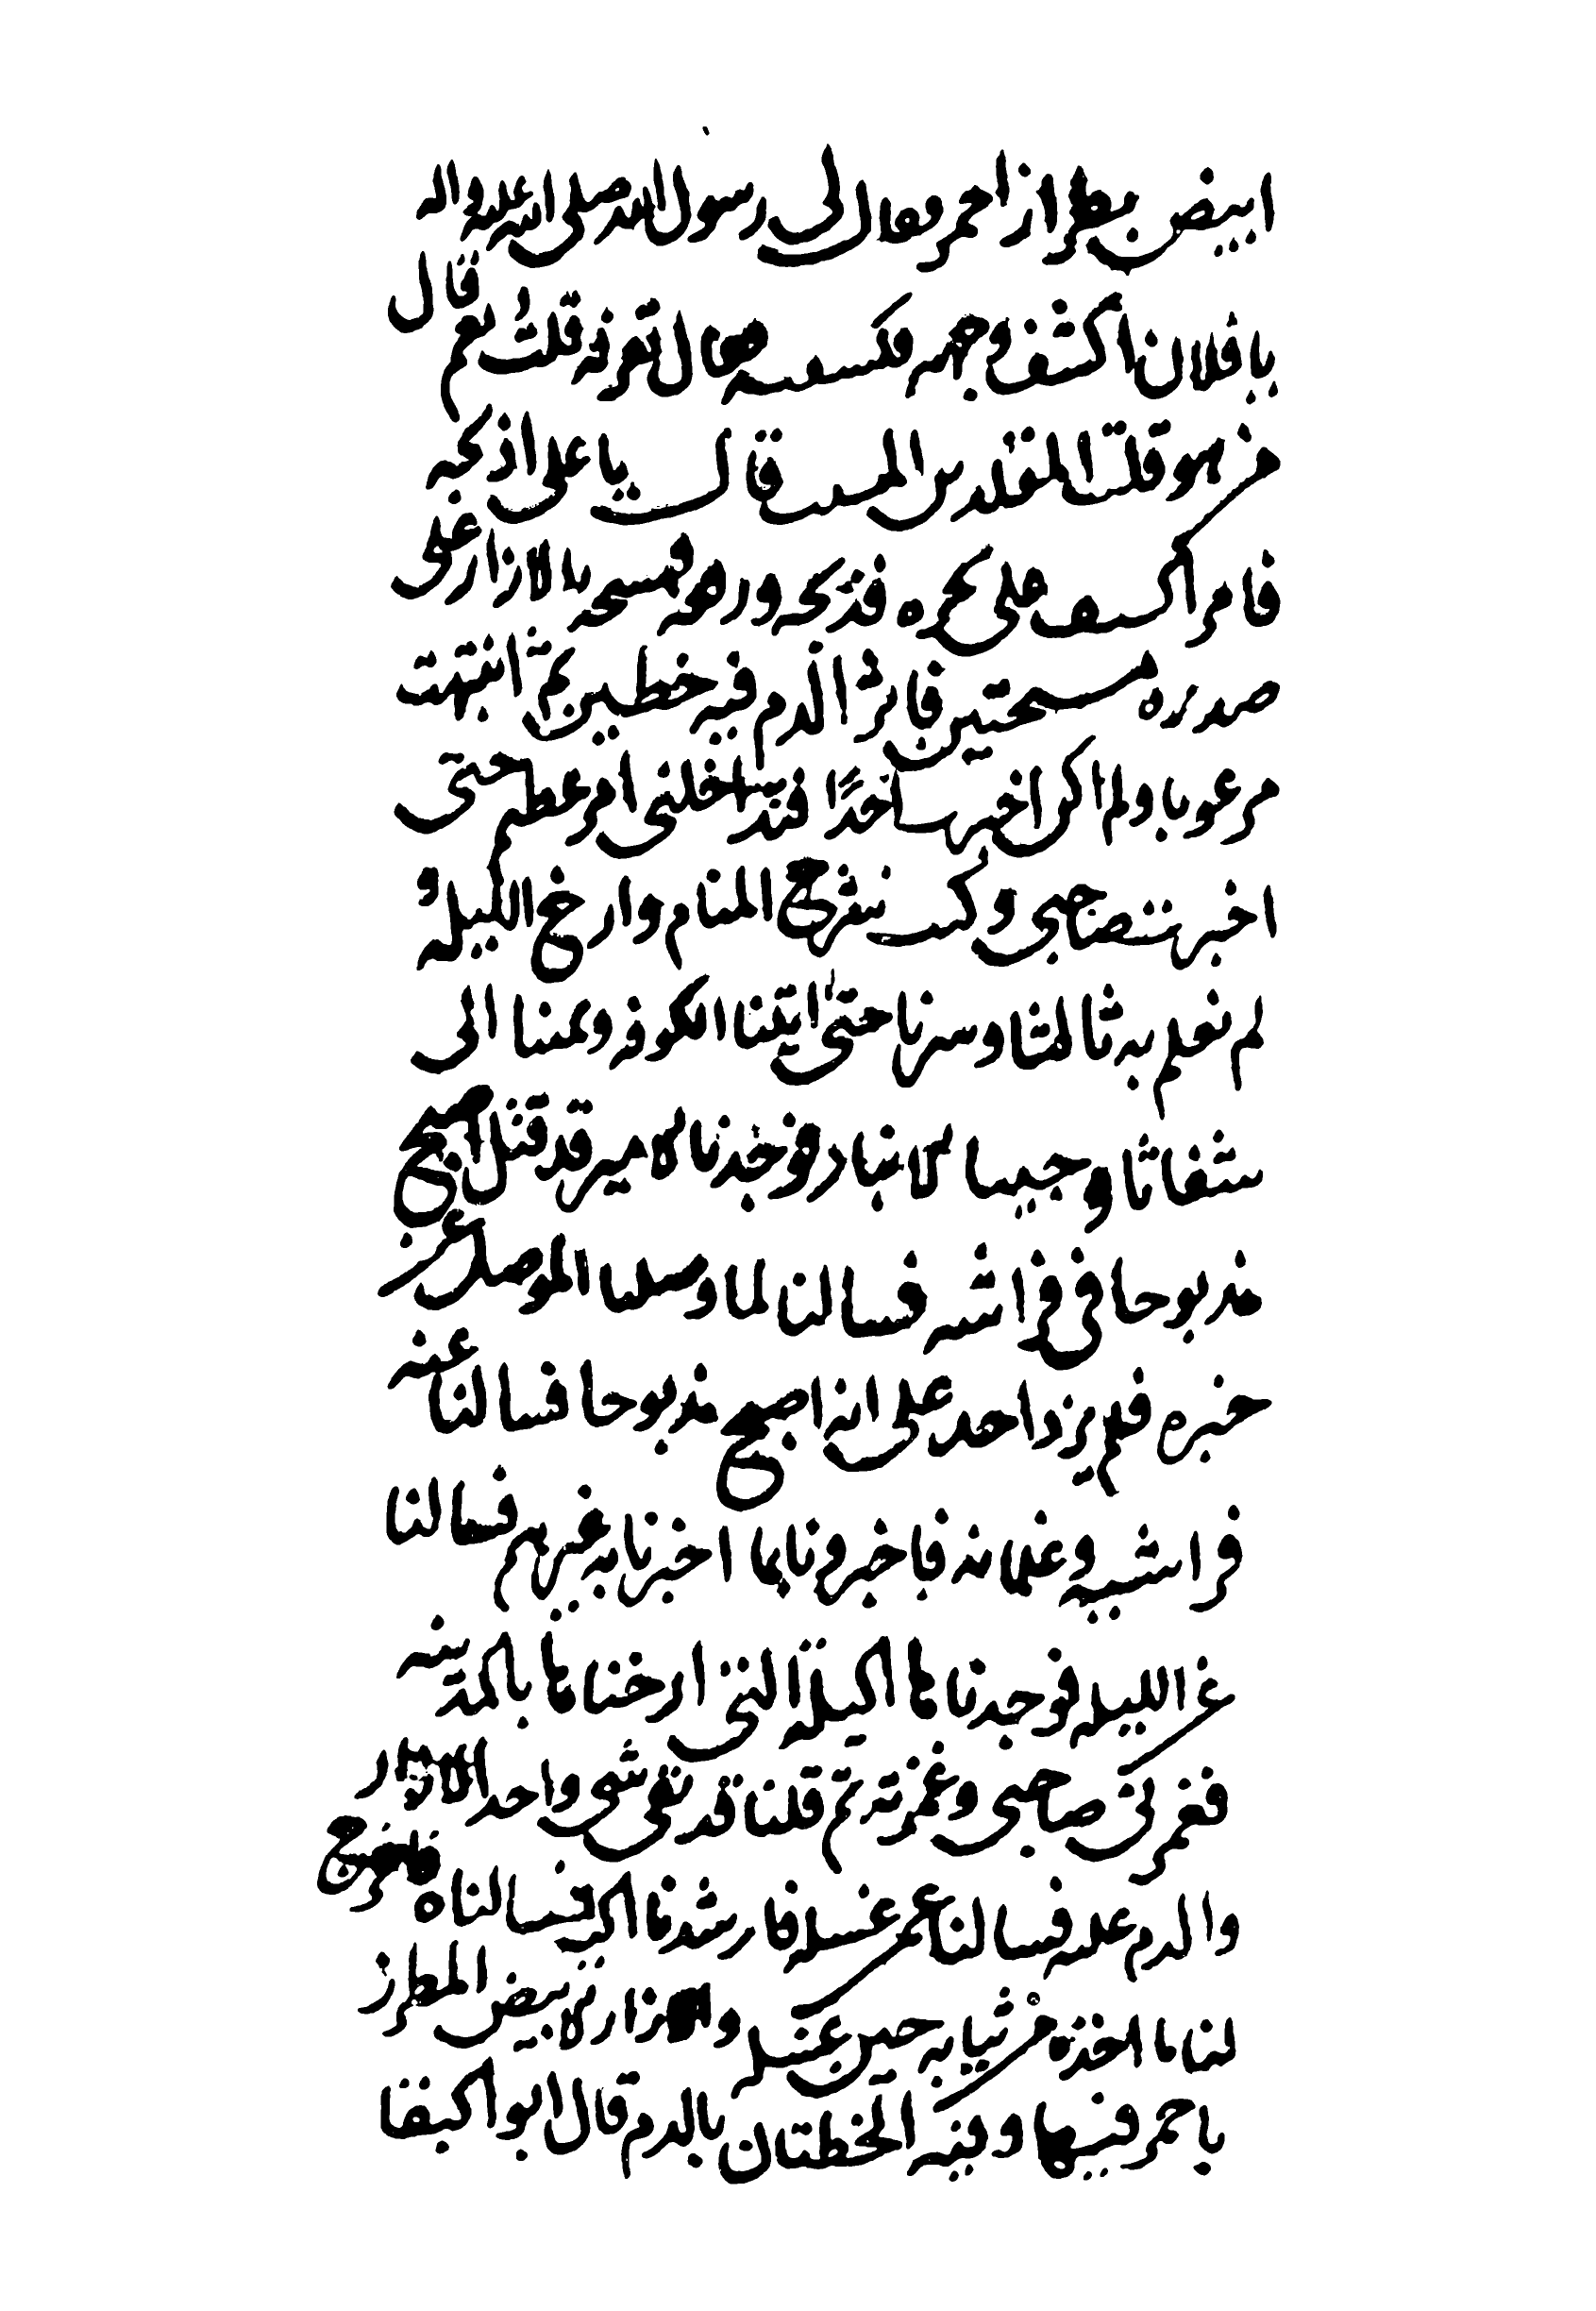 ابيض بطراز احمر فقال لي رسول الله صلى الله عليه واله
يا فلان اكشف وجهه فكشفته فقال تعرفه قلت نعم قال
من هو قلت المقلد بن المسيب قال يا علي اذبحه
فامر السكين على نحره فذبحه ورفعه فمسحه بالازار على
صدره مسحتين فاثر الدم فيه خطين ثم انتبهت
مرعوبا ولم اكن اخبرت احدا فتداخلني امر عظيم حتى
اخبرت صاحبي وكتبت شرح المنام وارخ الليلة و
لم نعلم به ثالثا وسرنا حتى اتينا الكوفة وعدنا الى
شفاثا وجينا الانبار فوجدنا الامير قد قتل اصبح
مذبوحا في فراشه فسالنا لما وصلنا الموصل عن
خبره فلم يزد احد على انه اصبح مذبوحا فسالنا عنه
فراشيه وغلمانه فاخبرونا بما اخبرنا به غيرهم فسالنا
عن الليلة فوجدناها الليلة التي ارخناها بالمدينة
فغمزني صاحبي وغمزته ثم قلنا قد بقي شي واحد الازار
والدم عليه فسالنا عمن غسله فارشدنا اليه فسالناه فاخرج
لنا ما اخذه من ثيابه حين غسله والازار الابيض المطرز
باحمر فيها وفيه الخطتان بالدم قال ابو البقا